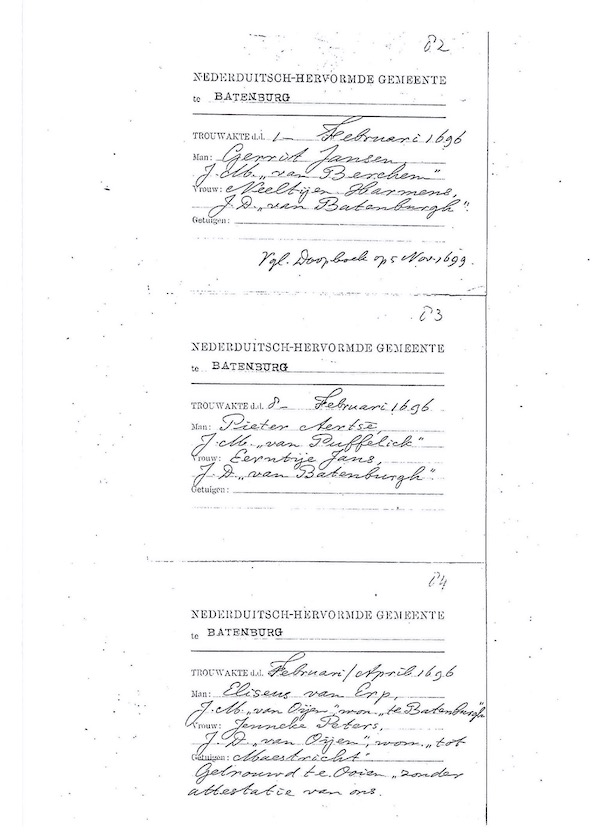 82
NEDERDUITSCH-HERVORMDE GEMEENTE
te BATENBURG
TROUWAKTE d.d. 1- Februari 1696
Man: Gerrit Jansen,
J.M. „van Berchem"
Vrouw: Neeltijen Harmens,
J.D. „van Batenburgh".
Getuigen:
Vgl. Doopboek op 5 Nov. 1699.
83
NEDERDUITSCH-HERVORMDE GEMEENTE
te BATENBURG
TROUWAKTE d.d. 8- Februari 1696
Man: Pieter Aertse,
J.M. „van Puffelick"
Vrouw: Eerntije Jans,
J.D. „van Batenburgh".
Getuigen:
84
NEDERDUITSCH-HERVORMDE GEMEENTE
te BATENBURG
TROUWAKTE d.d. Februari/April 1696
Man: Eliseus van Erp,
J.M. „van Oijen", won. „te Batenburgh"
Vrouw: Jenneke Peters,
J.D. „van Oijen", won. „tot
Getuigen: Maestricht"
Getrouwd te Ooien „zonder
attestatie van ons.